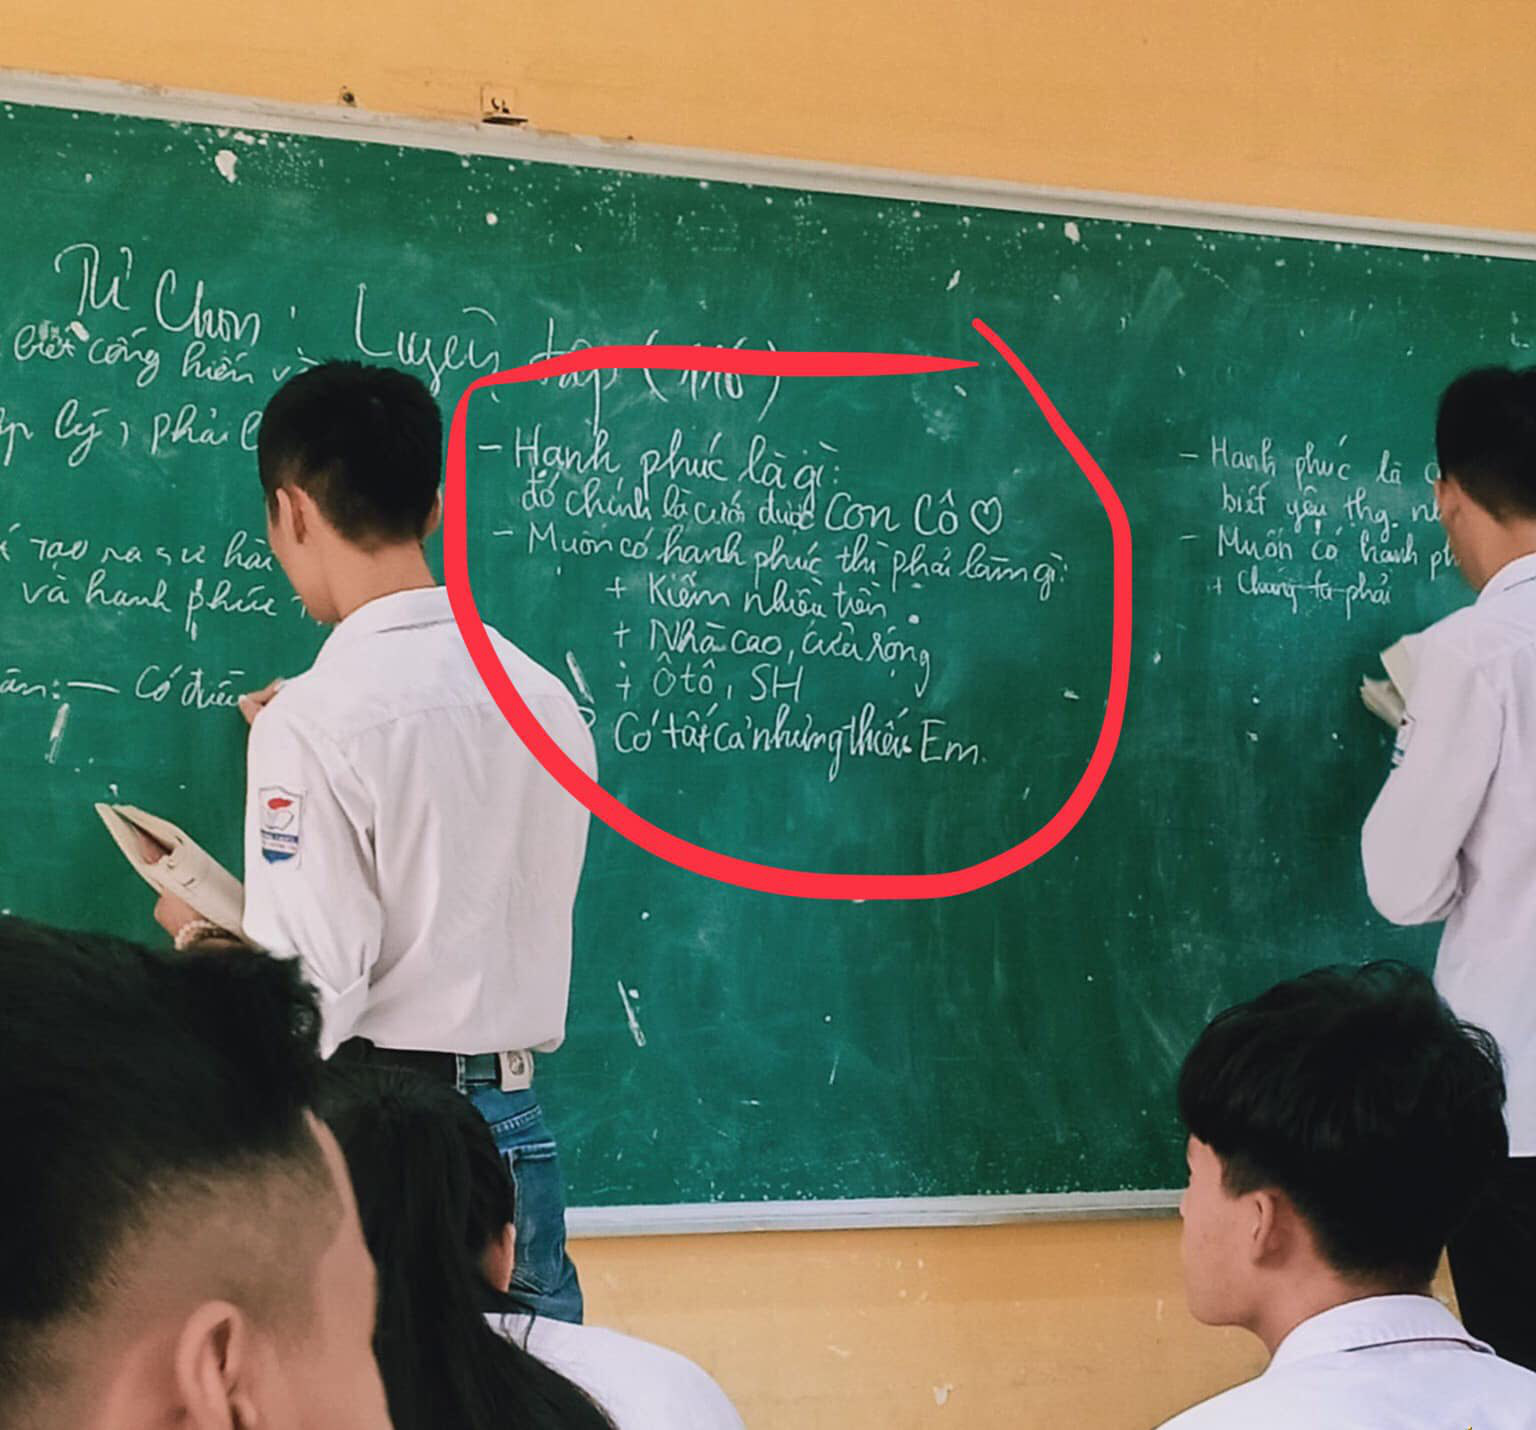 Tự Chọn: Luyện tập (116)
biết cống hiến
lý, phải
tạo ra sự hài
và hạnh phúc
Có điều
- Hạnh phúc là gì:
đó chính là cưới được Con Cô ♡
- Muốn có hạnh phúc thì phải làm gì:
+ Kiếm nhiều tiền
+ Nhà cao, cửa rộng
+ Ôtô, SH
Có tất cả nhưng thiếu Em.
- Hạnh phúc là
biết yêu thg.
- Muốn có hạnh
+ Chúng ta phải